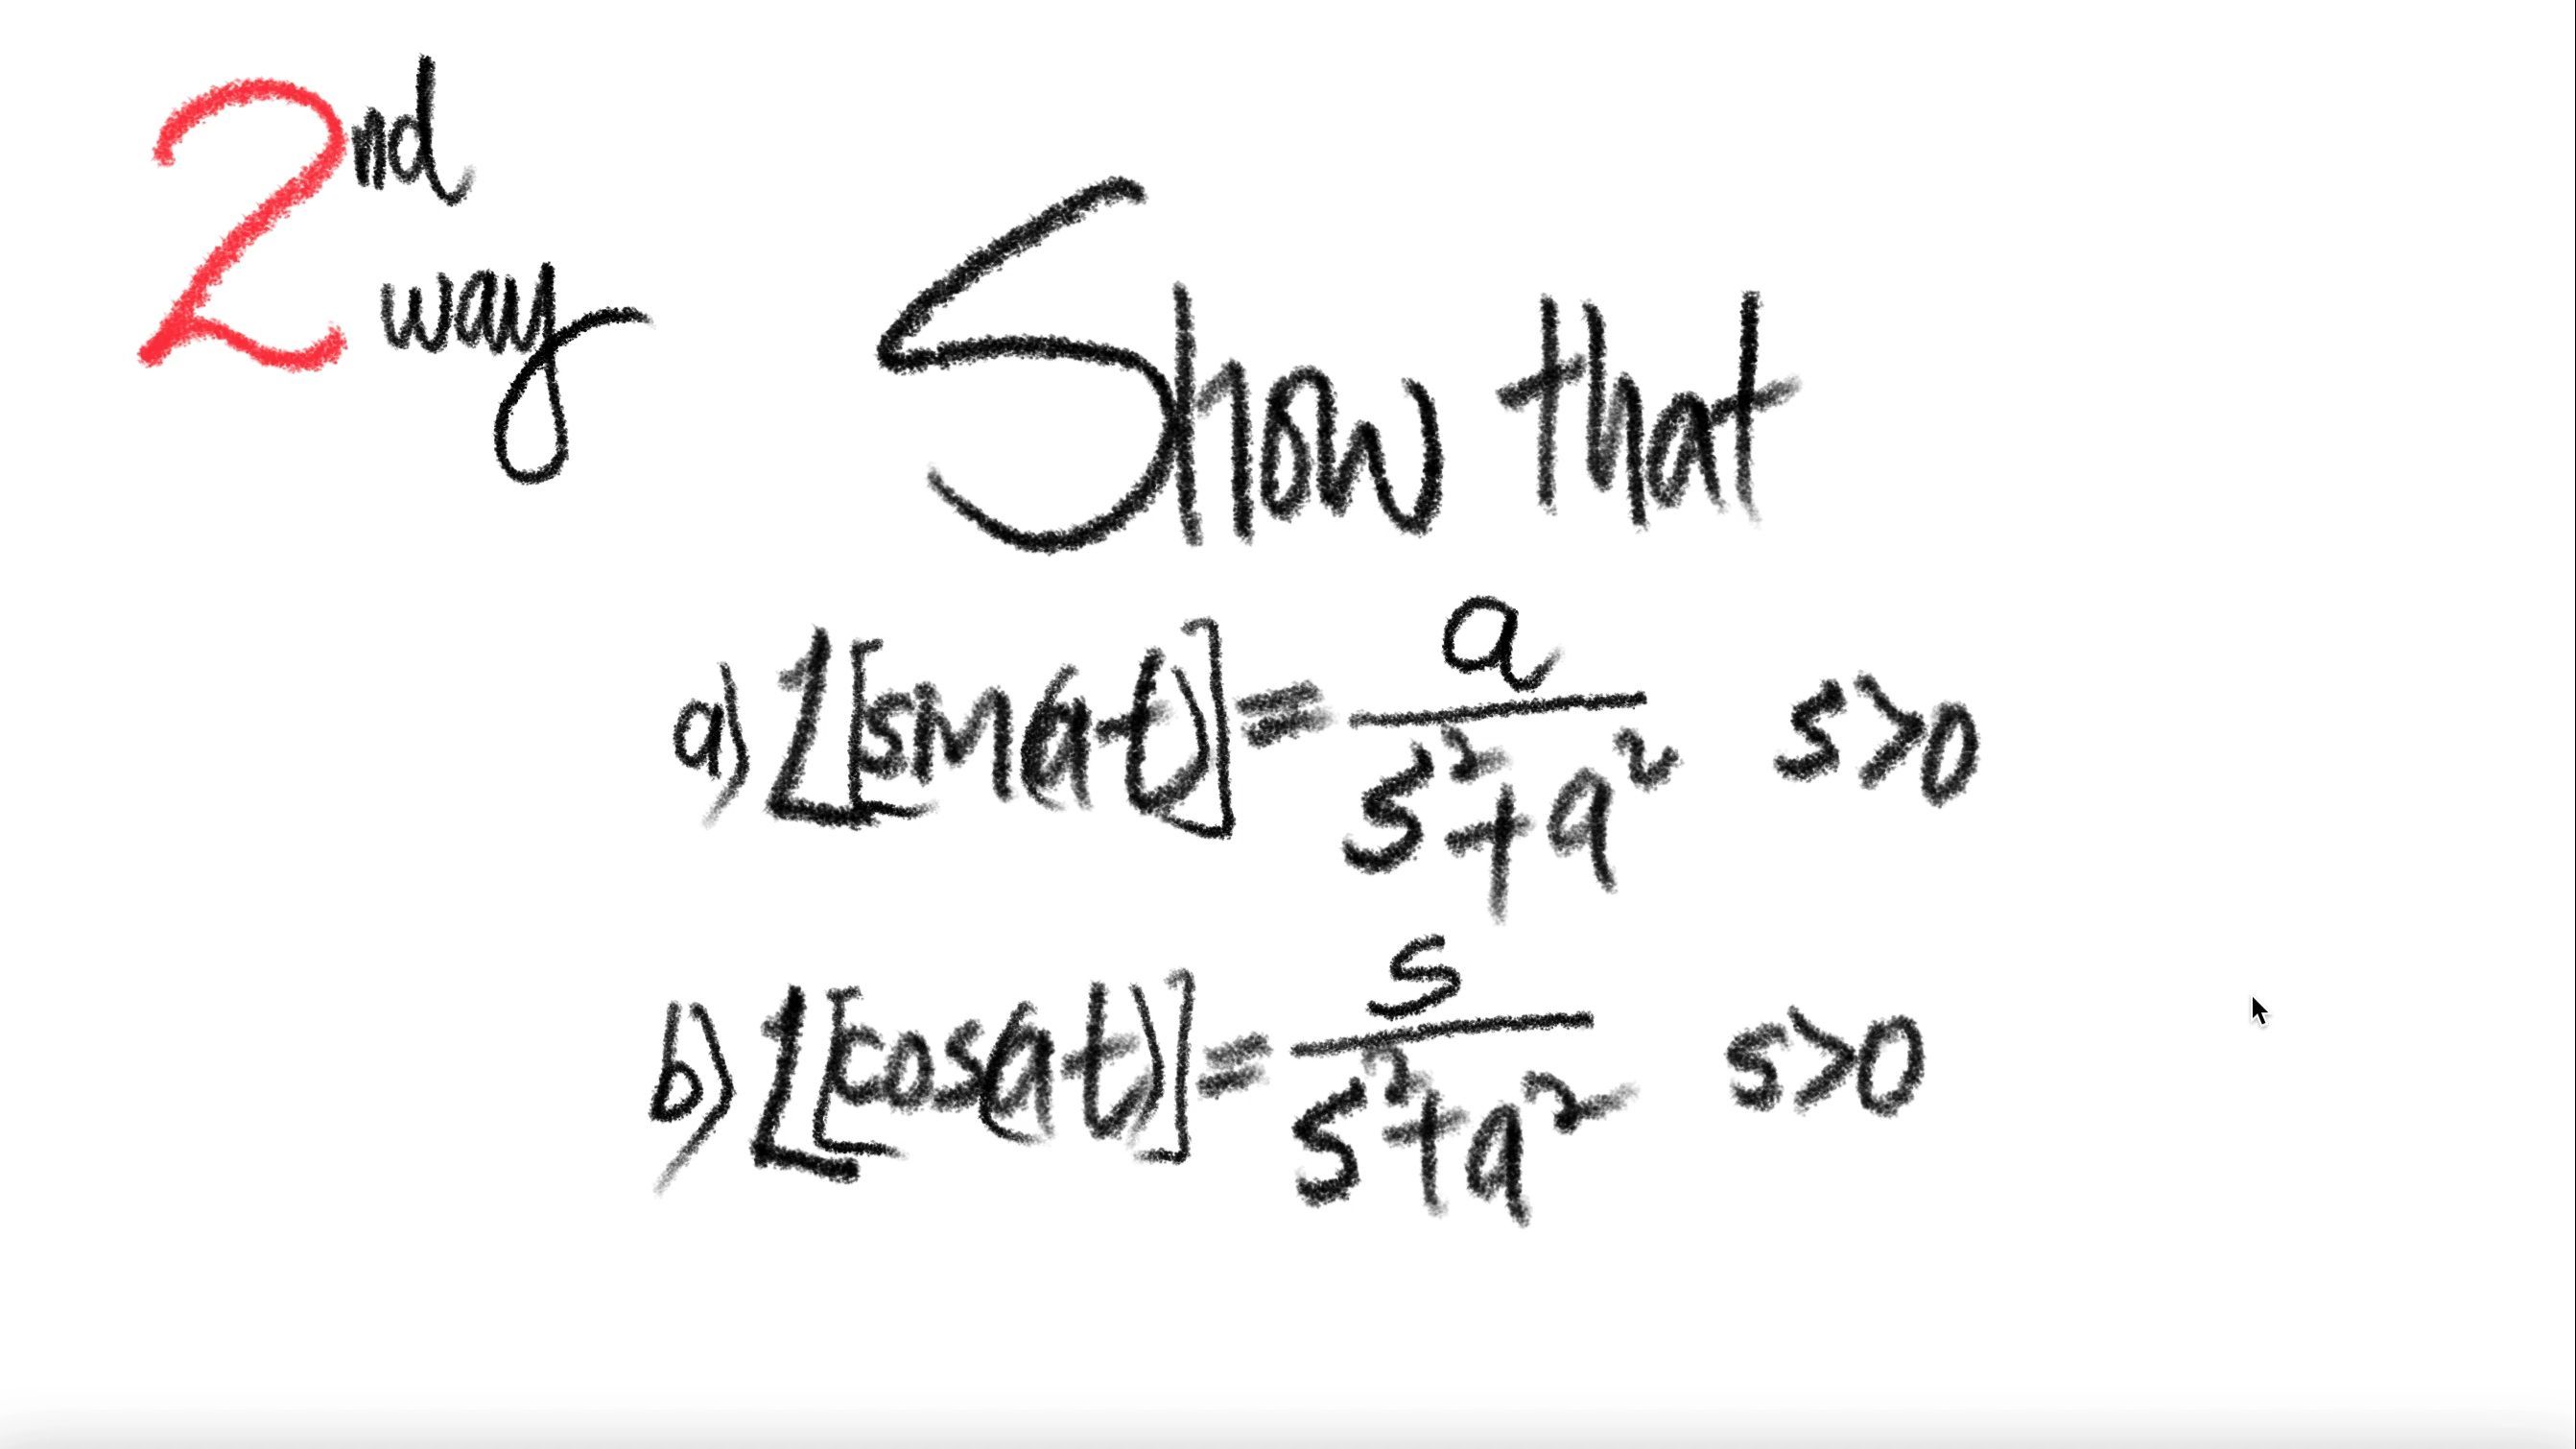 2nd
way
Show that
a) L[sin(at)] = a/(s²+a²) s>0
b) L[cos(at)] = s/(s²+a²) s>0